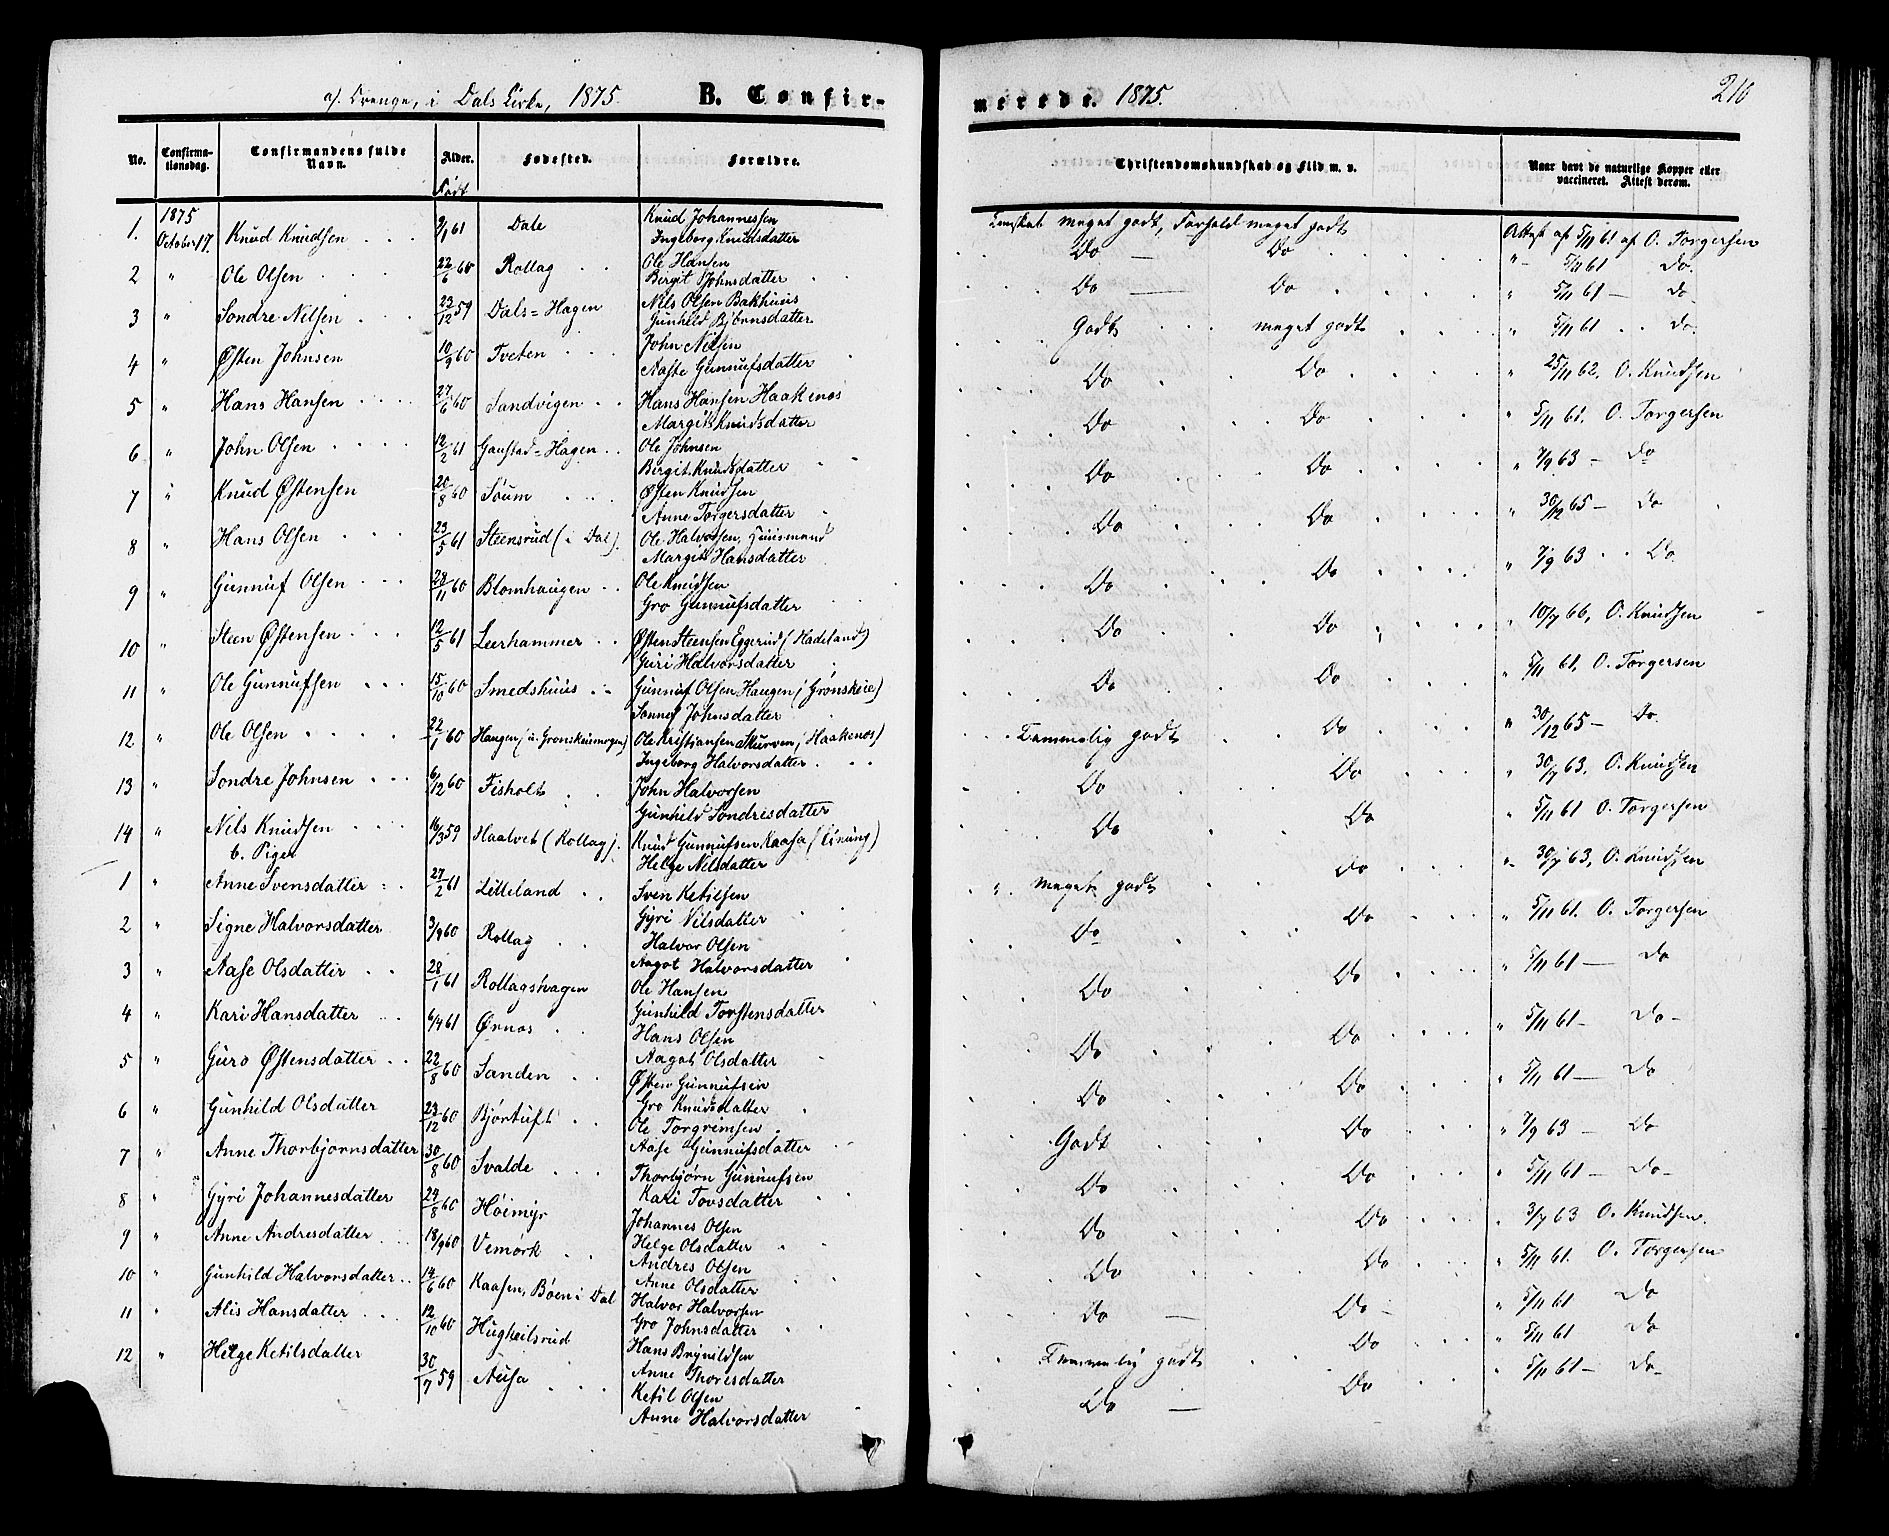 a/. Drenge, i Dals Kirke, 1875. B. Confir-
No. Confirma-tionsdag. Confirmandens fulde Navn. Alder. Fødested. Forældre.
Født
1. 1875 October 17. Knud Knudsen 9/1 61 Dale Knud Johannessen
Ingeborg Knudsdatter
2 " Ole Olsen 22/6 60 Rollag Ole Hansen
Birgit Johnsdatter
3 " Sondre Nilsen 23/12 59 Dals=Hagen Nils Olsen Bakhuus
Gunhild Bjørnsdatter
4 " Østen Johnsen 10/9 60 Tveten John Nilsen
Aaste Gunnufsdatter
5 " Hans Hansen 27/6 60 Sandvigen Hans Hansen Haakenæs
Margit Knudsdatter
6 " John Olsen 12/2 61 Gaustad=Hagen Ole Johnsen
Birgit Knudsdatter
7 " Knud Østensen 20/8 60 Soum Østen Knudsen
Anne Torgersdatter
8 " Hans Olsen 23/5 61 Steensrud (i Dal) Ole Halvorsen, Huusmand
Margit Hansdatter
9 " Gunnuf Olsen 28/11 60 Blomhaugen Ole Knudsen
Gro Gunnufsdatter
10 " Steen Østensen 12/5 61 Leerhammer Østen Steensen Eggerud (Hadeland)
Guri Halvorsdatter
11 " Ole Gunnufsen 15/10 60 Smedshuus Gunnuf Olsen Haugen (Grønskeie)
Sonnef Johnsdatter
12 " Ole Olsen 22/1 60 Haugen (u. Grønskeimogen) Ole Kristiansen Skurven (Haakenæs)
Ingeborg Halvorsdatter
13 " Sondre Johnsen 6/12 60 Fisholt John Halvorsen
Gunhild Sondresdatter
14 " Nils Knudsen 16/3 59 Haatvet (Rollag) Knud Gunnufsen Kaasa
b. Piger Helge Nilsdatter
1 " Anne Svensdatter 27/2 61 Lilleland Sven Ketilsen
Gyri Nilsdatter
2 " Signe Halvorsdatter 3/9 60 Rollag Halvor Olsen
Aagot Halvorsdatter
3 " Aase Olsdatter 28/1 61 Rollagshagen Ole Hansen
Gunhild Torstensdatter
4 " Kari Hansdatter 6/4 61 Ørnæs Hans Olsen
Aagot Olsdatter
5 " Guro Østensdatter 22/8 60 Sanden Østen Gunnufsen
Gro Knudsdatter
6 " Gunhild Olsdatter 23/12 60 Bjørtuft Ole Torgrimsen
Aase Gunnufsdatter
7 " Anne Thorbjørnsdatter 30/8 60 Svalde Thorbjørn Gunnufsen
Kari Tovsdatter
8 " Gyri Johannesdatter 24/8 60 Høimyr Johannes Olsen
Helge Olsdatter
9 " Anne Andresdatter 18/9 60 Vemørk Andres Olsen
Anne Olsdatter
10 " Gunhild Halvorsdatter 14/6 60 Kaasen, Bøen i Dal Halvor Halvorsen
Gro Johnsdatter
11 " Alis Hansdatter 12/10 60 Hugheilsrud Hans Brynildsen
Anne Thoresdatter
12 " Helge Ketilsdatter 30/7 59 Ausa Ketil Olsen
Anne Halvorsdatter
merede. 1875. 210
Christendomskundskab og Flid m. v. Naar havt de naturlige Kopper eller vaccineret. Attest derom.
Kundskab meget godt, Forhold meget godt Attest af 5/11 61 af O. Torgersen
Do — Do " - 5/11 61 Do.
Do — Do " 5/11 61 — Do
Godt meget godt " 5/11 61 Do.
Do Do " 25/11 62, O. Knudsen
Do Do " 5/11 61. O. Torgersen
Do Do " 7/9 63 — Do
Do Do " 30/12 65 — Do
Do Do " 7/9 63 Do
Do Do " 10/7 66, O. Knudsen
Do Do " 5/11 61. O. Torgersen
Temmelig godt Do " 30/12 65 — Do.
Do Do " 30/7 63, O. Knudsen
Do Do " 5/11 61 O. Torgersen
" meget godt Do " 30/7 63, O. Knudsen
Do Do " 5/11 61. O. Torgersen
Do Do " 5/11 61 — Do
Do Do " 5/11 61 - Do -
Do Do " 5/11 61 — Do
Godt Do " 7/9 63 — Do
Do Do " 5/11 61 — Do -
Do Do " 3/7 63 O. Knudsen.
Do Do " 5/11 61. O. Torgersen
Do — Do - " 5/11 61 Do
Temmelig godt Do " 5/11 61 Do
Do — Do " 5/11 61 — Do -